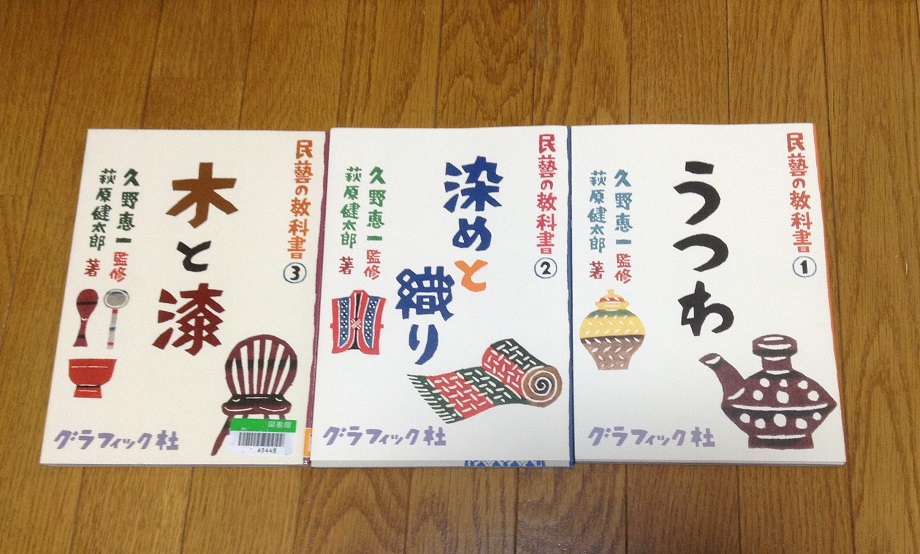 民藝の教科書
①
うつわ
久野恵一 監修
萩原健太郎 著
グラフィック社
民藝の教科書
②
染めと
織り
久野恵一 監修
萩原健太郎 著
グラフィック社
民藝の教科書
③
木と漆
久野恵一 監修
萩原健太郎 著
グラフィック社
図書館